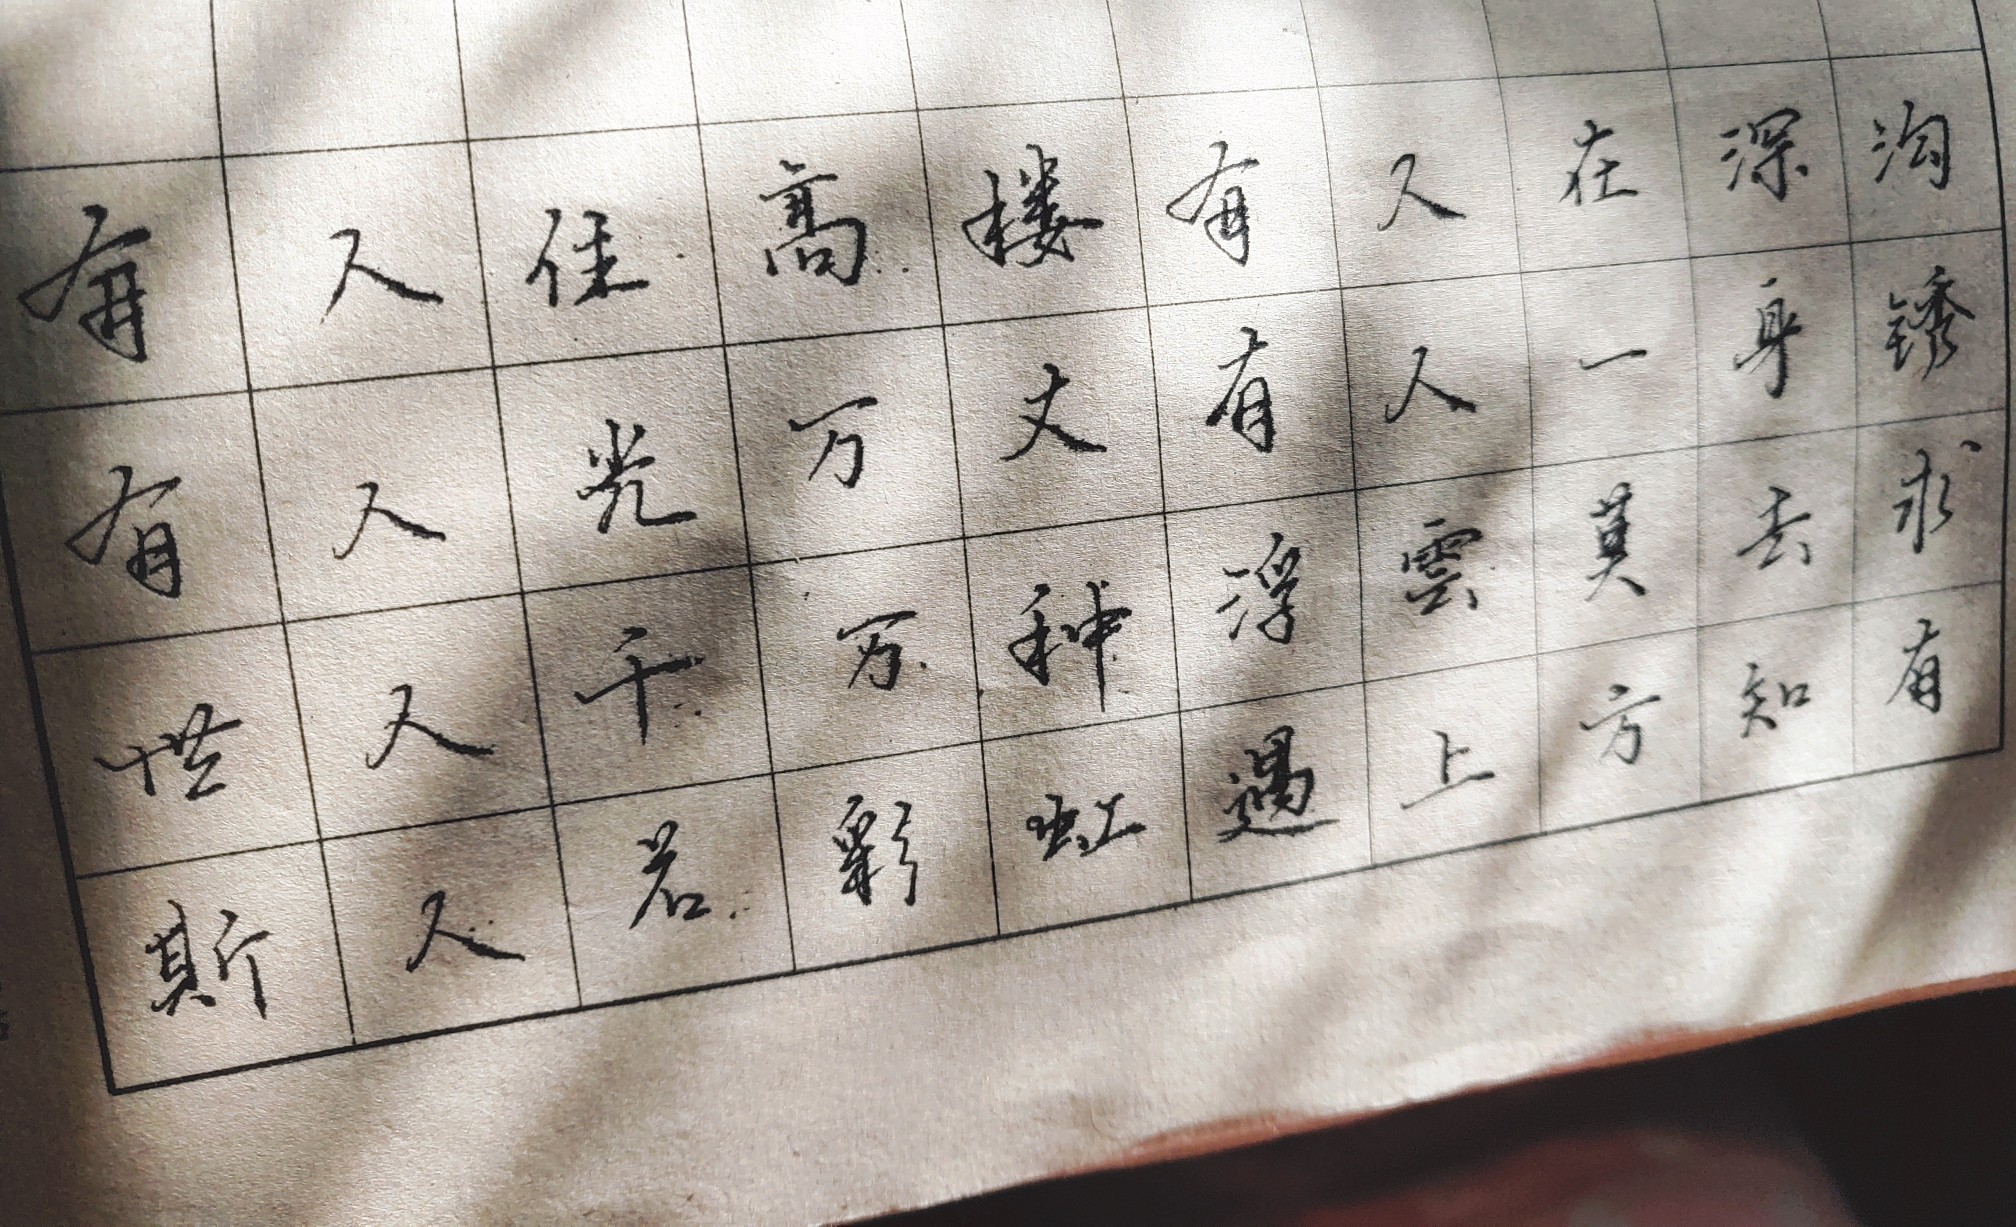 有人住高楼有人在深沟
有人光万丈有人一身锈
世人千万种浮雲莫去求
斯人若彩虹遇上方知有